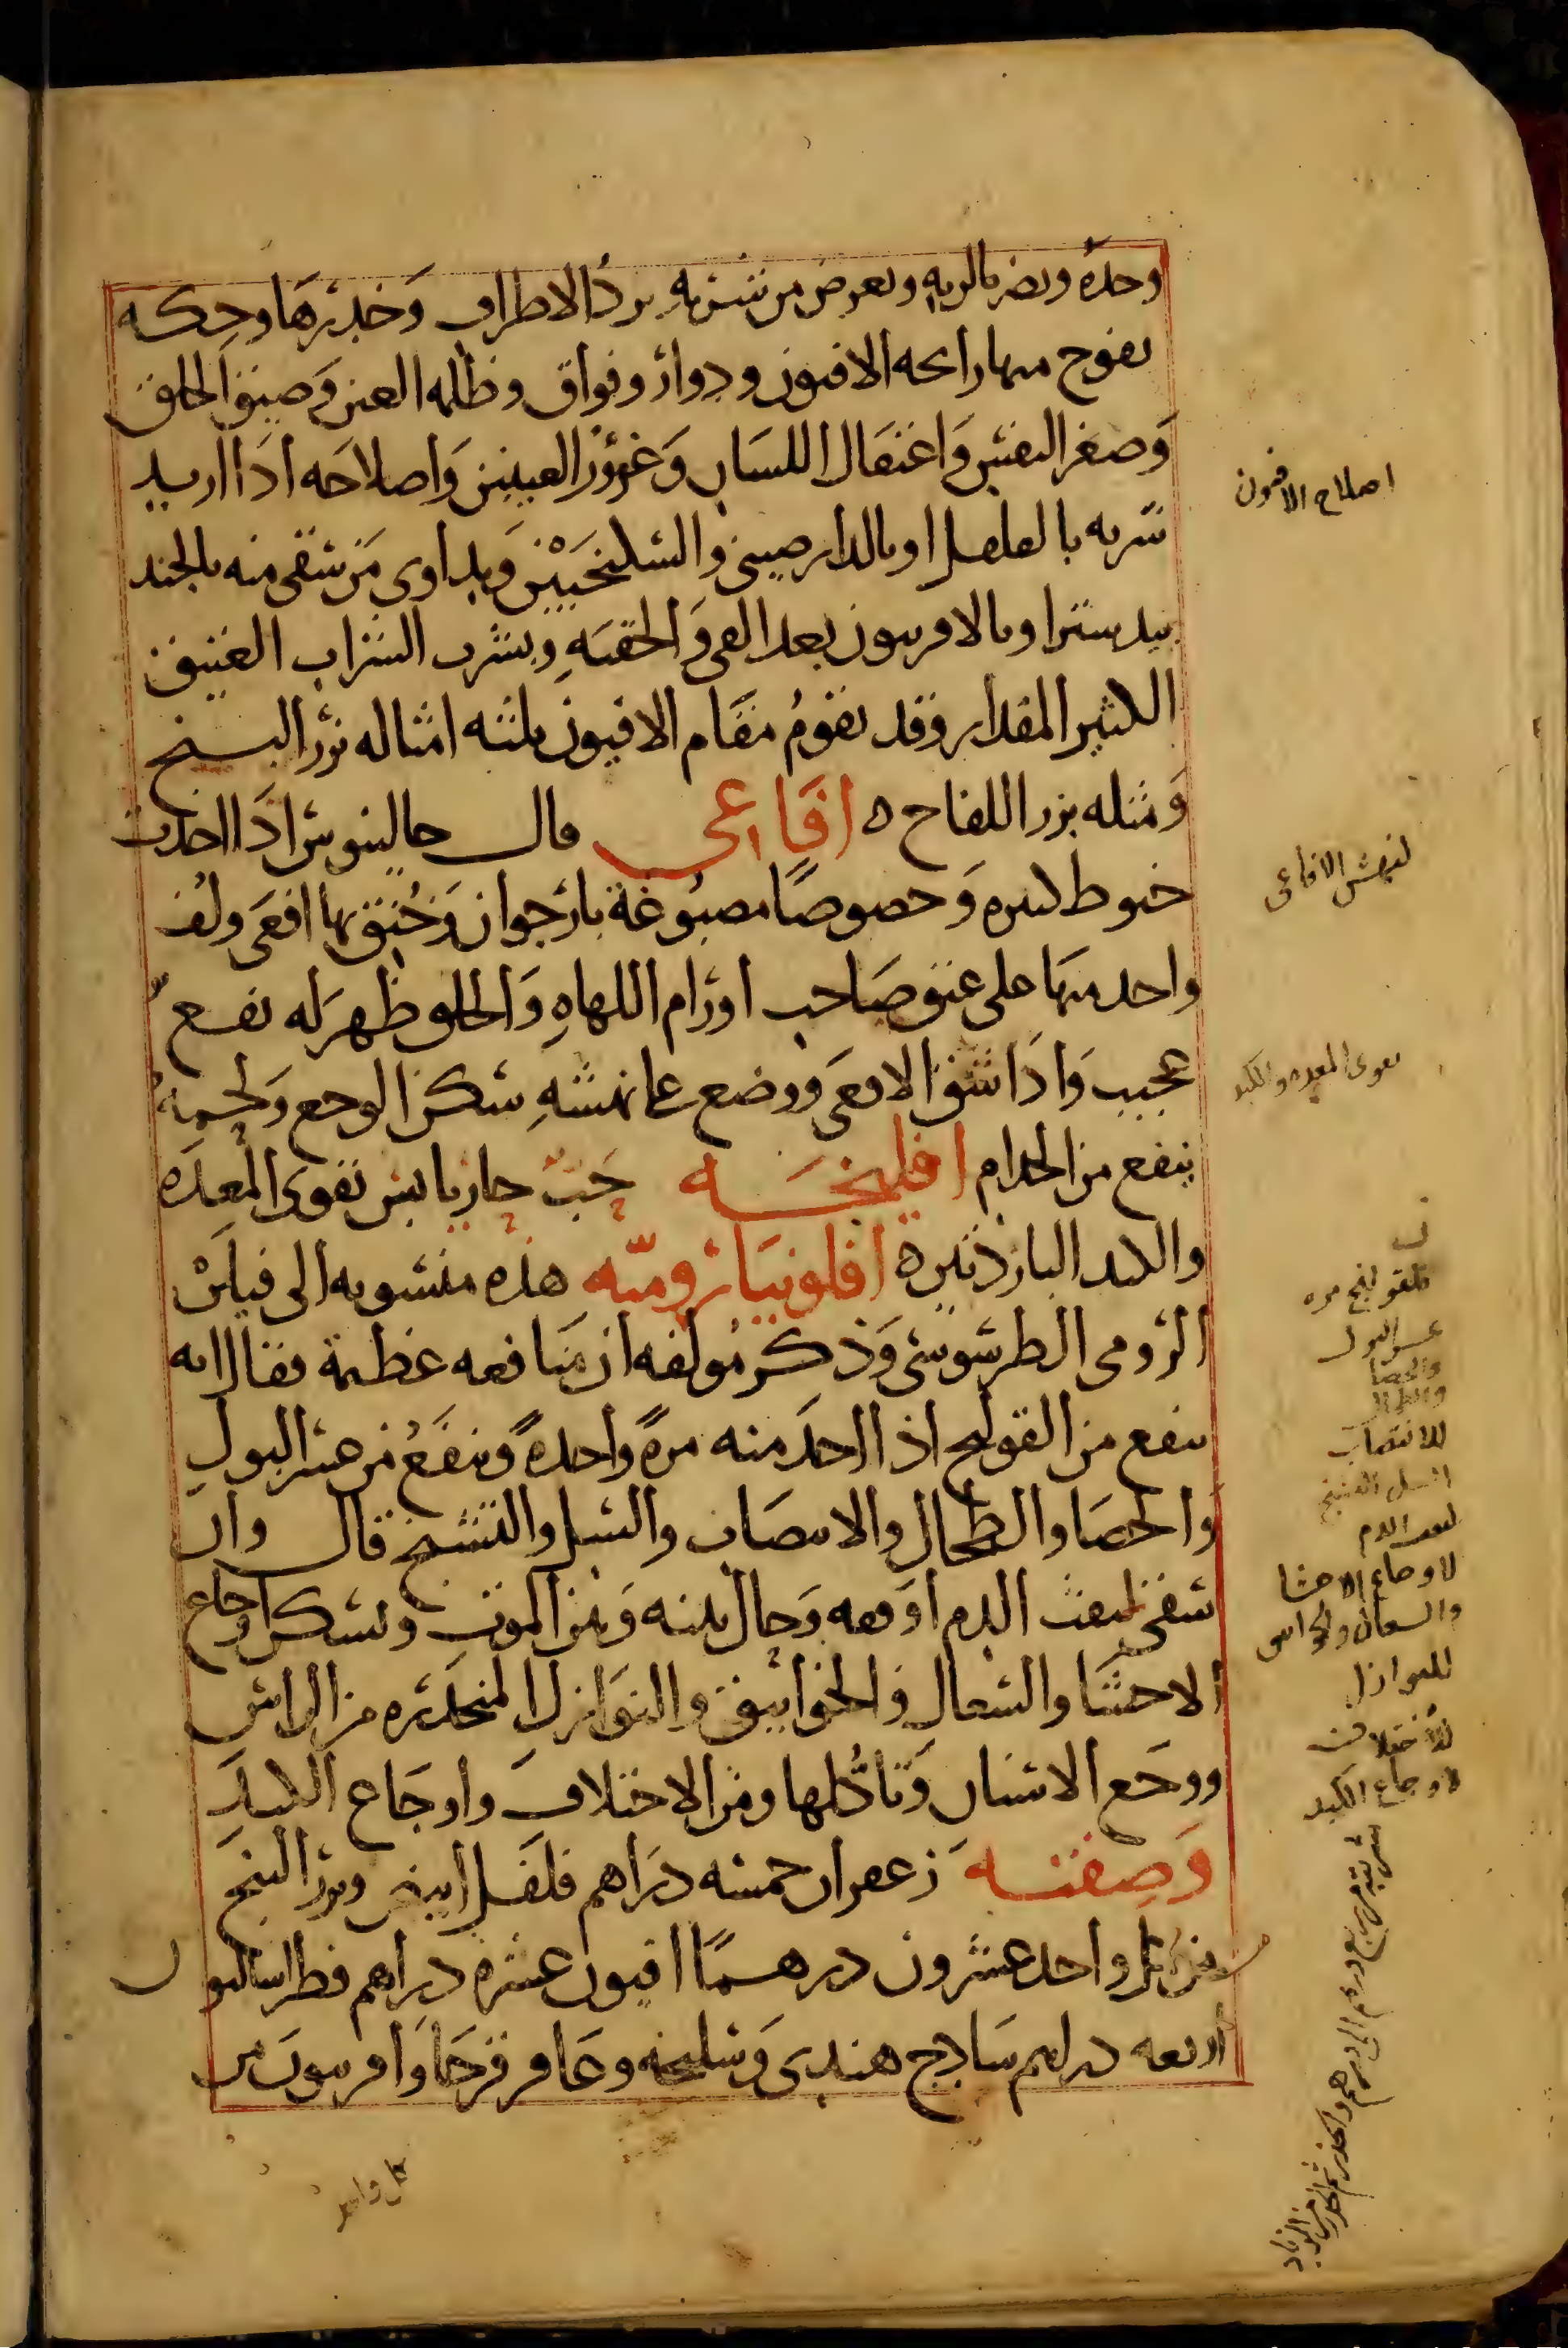 وحده ويضر بالريه ويعرض من شربه برد الاطراف وَخدرهَا وحكه
يفوح منها رايحه الافيون ودوار وفواق وظلمه العين وَضيق الحلق
وَصغر النفس وَاعتقال اللسان وَغؤور العينين وَاصلاحَه اذَا اريد
شربه بالفلفل او بالدارصيني والسكنجبين وَيداوى مَن سقى منه بالجند
بيدستر او بالافربيون بعد القي وَالحقنهِ ويشرب الشراب العتيق
الكثير المقدار وقد يقومُ مقَام الافيون ثلثه امثاله بزر البنج
وَمثله بزر اللفاح ه افَاعى قال جالينوس اذَا اخذت
خيوط كثيره وَخصوصًا مصبُوغة بارجوان وَخُنِق بها افعَى ولُف
واحد منهَا على عنق صَاحب اورَام اللهاهِ وَالحلق ظهرَ له نفع
عجيب وَاذَا شق الافعَى ووضع على نهشهِ سكن الوجع وَلحمه
ينفع من الجذام افليخَه حَبٌ حار يابس يقوى المعدَه
والكبد البارذتين ه افلونيَا روميّه هذه منسوبه الى فيلَن
الرُومى الطرسُوسى وَذكر مُولفه ان مَنافعه عظيمة فقال انه
ينفع من القولنج اذا اخذَ منه مرةً وَاحدةً وَينفَعُ من عسر البولِ
وَالحصَا والطحالِ والانتصَاب والسل والتشنج قال وان
سقى لنفث الدم اوقفه وَحال بينه وَبين الموت ويسكن اوجاع
الاحشَا والسعالِ وَالخوانيق والنوَازل المنحدَره من الراس
ووجَع الاسنان وَتاكُلها ومن الاختلافِ واوجَاع الكبدَ
وَصِفته زعفران خمسه درَاهم فلفل ابيض وبزر البنج
من كل واحد عشرون درهمًا افيون عشره درَاهم فطراساليون
اربعه دراهم سَادج هندى وَسليخه وعَاقرقرحَا وَافربيونَ من
كل واحد
اصلاح الافيون
لنهش الافاعى
يقوى المعده والكبد
عسر البول
والحصا
والطحال
للانتصاب
السل التشنج
لنفث الدم
لاوجاع الاحشا
والسعال والخوانيق
للنوازل
للاختلاف
لاوجاع الكبد